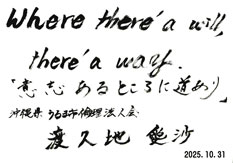 Where there'a a will,
there'a a way.
「意志あるところに道あり」
沖縄県 うるま市倫理法人会
渡久地 奐沙
2025.10.31